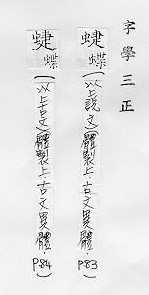 字學三正
蜨蝶(以上說文)(體製上.古文異體.P83)
蜨蝶(以上古文)(體製上.古文異體.P84)